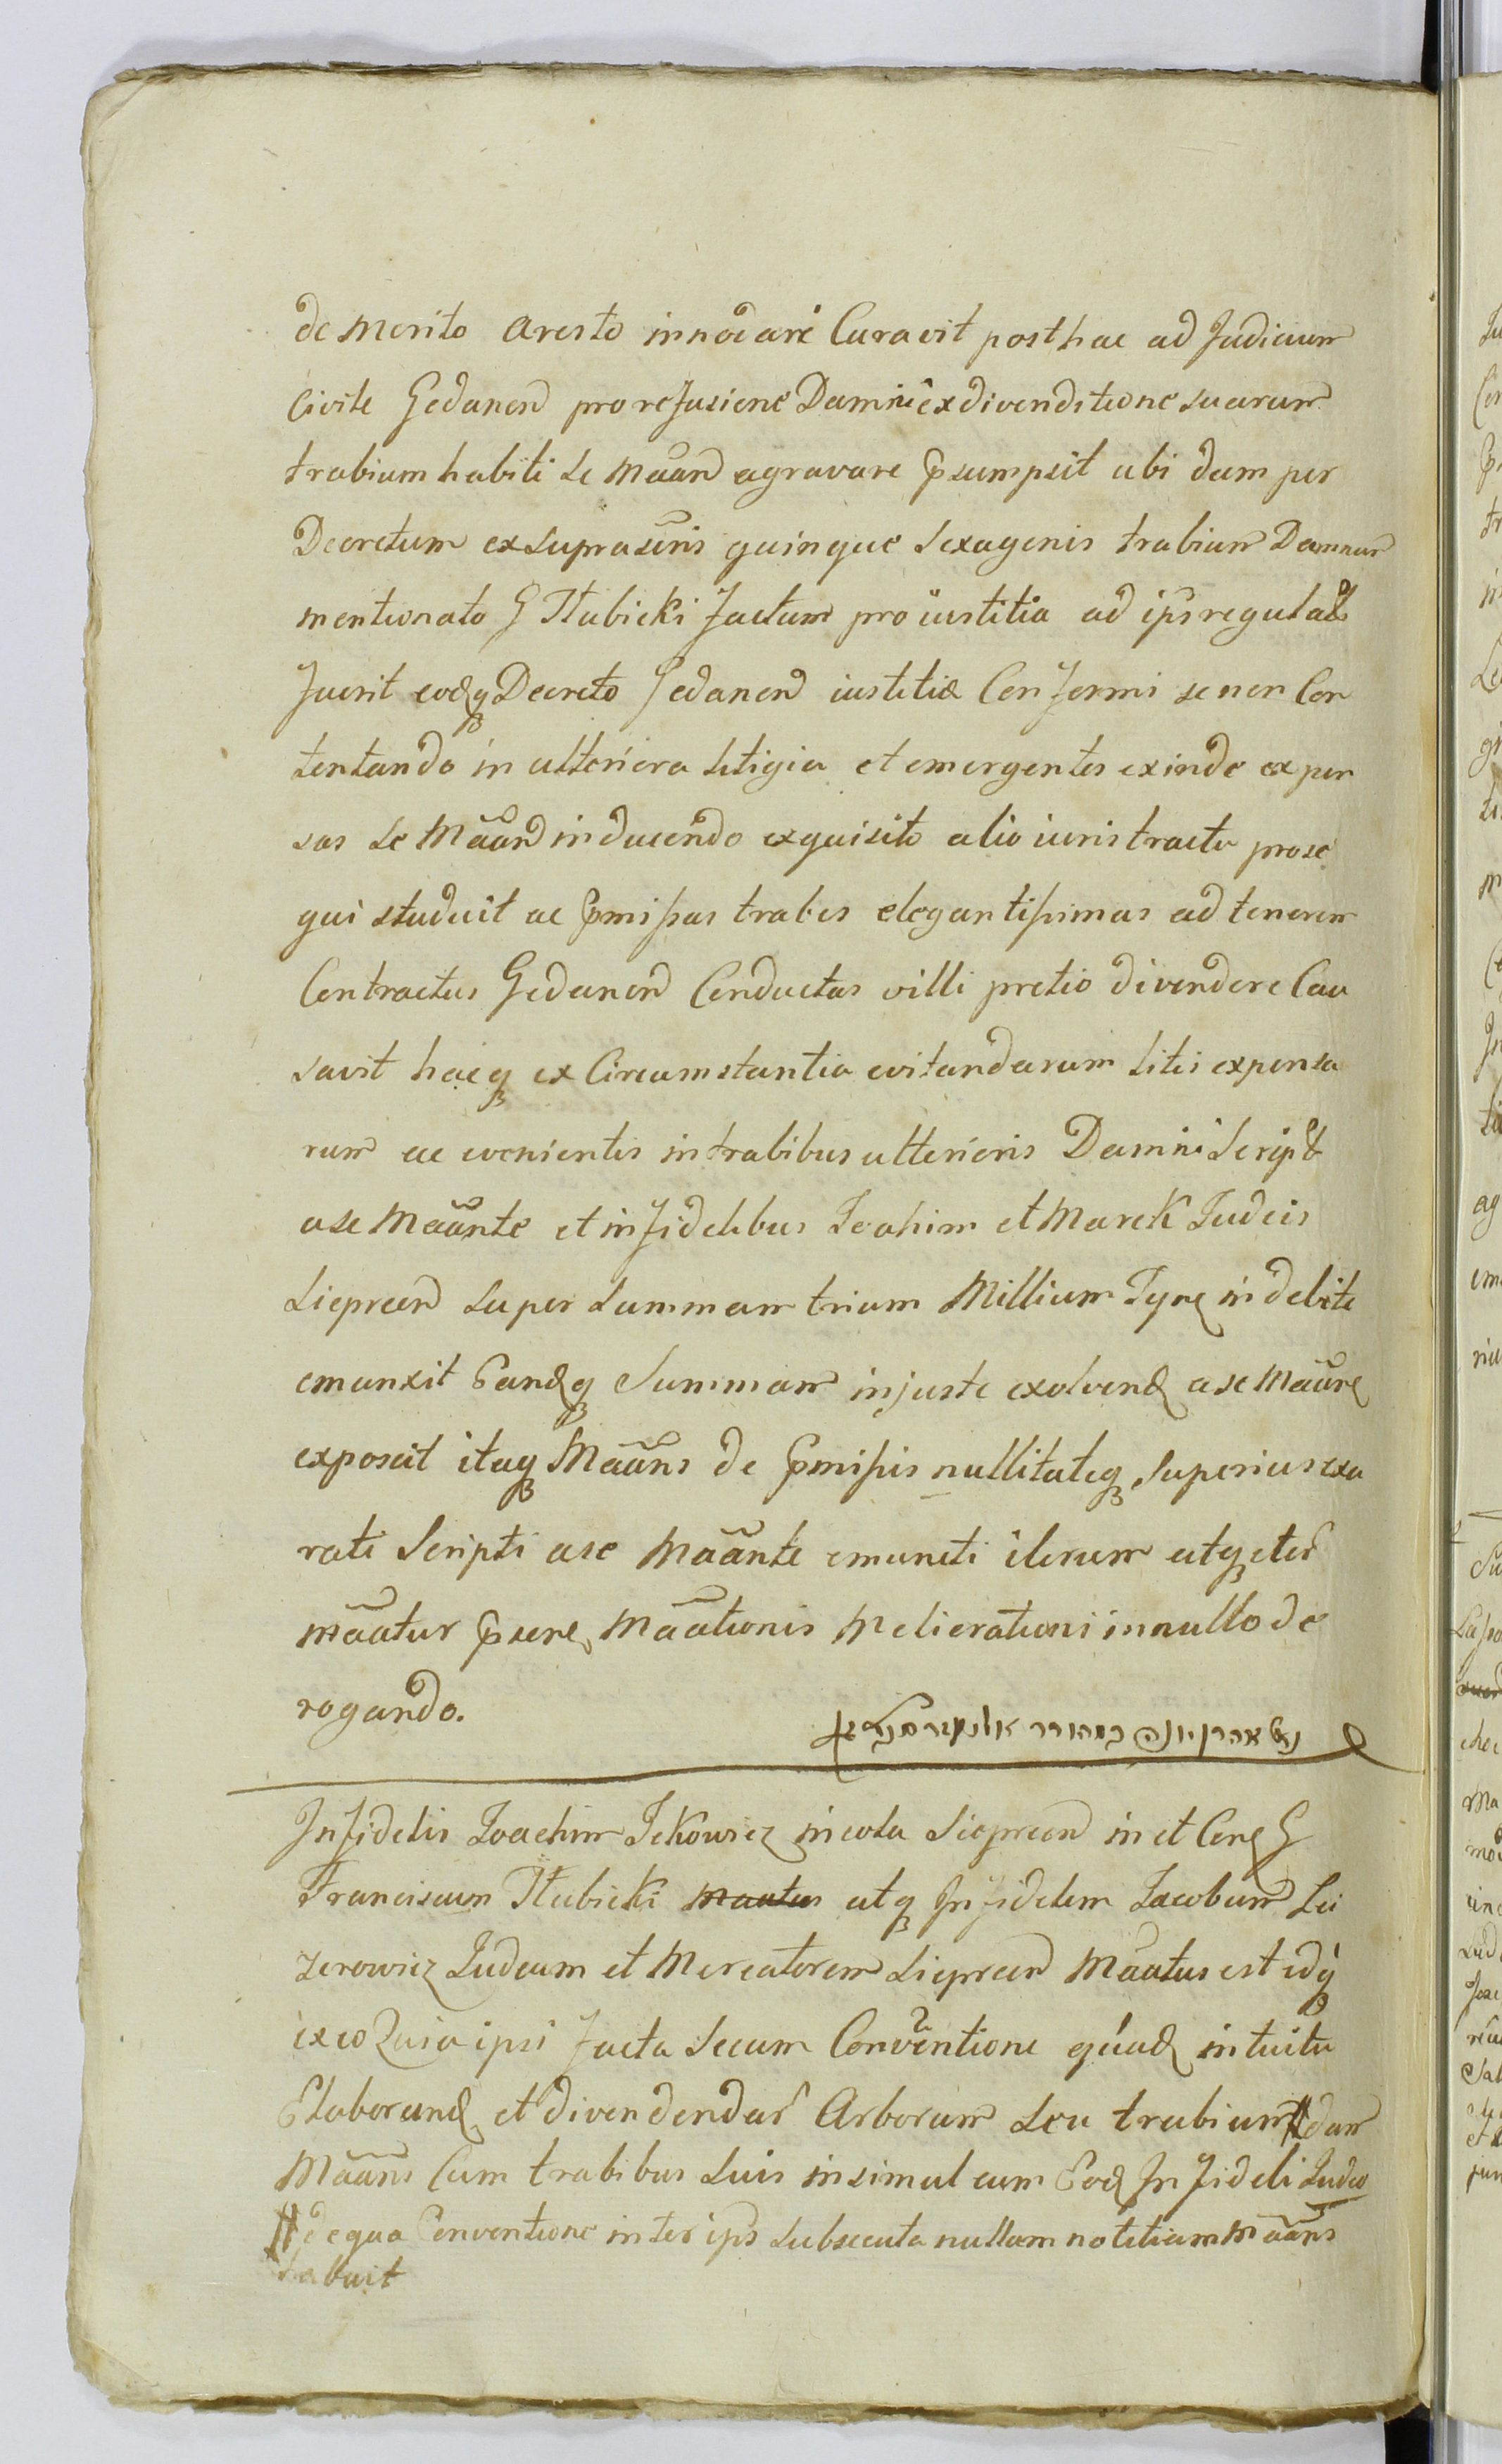 de merito aresto innodare Curavit post hac ad Judicium
Civile Gedanen pro refusione Damni ex divenditione suarum
trabium habiti se Maan agravare psumpsit ubi dum per
Decretum ex suprascris quinque sexagenis trabium Damnum
mentionato G Hubicki factum pro iustitia ad ips regulat
fuerit eodq Decreto Gedanen iustitiæ Conformi se non Con
tentando in ulteriora litigia et emergentes exinde expen
sas se Maan inducendo exquisito alio iuris tractu prose
qui studuit ac pmissas trabes elegantissimas ad tenorem
Contractus Gedanen Conductas villi pretio divendere Cau
savit hacq ex Circumstantia evitandarum litis expensa
rum ac evenientis in trabibus ulterioris Damni Script
a se Maante et infidelibus Joahim et Marek Judeis
Sieprcen super summam trium Millium Tynf indebite
emunxit Eandq Summam injuste exolvend a se Maane
exposcit itaq Maans de pmissis nullitateq superius exa
rati Scripti a se Maante emuncti iterum atq iter
maatur psene Maationis Melierationi in nullo de
rogando.
Infidelis Joachim Jckowicz incola Siepreen in et Cone G
Franciscum Hubicki maatus atq Infidelem Jacobum Lei
zerowicz Judeum et Mercatorem Siepreen Maatus est idq
ex eo Quia ipsi facta secum Conventione quad intuitu
Elaborand et divendendar Arborum seu trabium # dum
Maans Cum trabibus suis insimul cum Eod Infideli Judeo
# de qua Conventione inter ips subsecuta nullam notitiam Maans
habuit